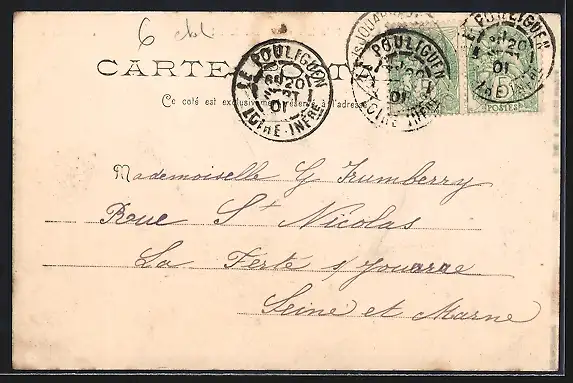 6
CARTE POSTALE
Ce côté est exclusivement réservé à l'adresse
LE POULIGUEN
20
01
LOIRE-INFRE
LE POULIGUEN
20
01
LOIRE-INFRE
LE POULIGUEN
20
01
POSTES
Mademoiselle G Irumberry
Rue St Nicolas
La Ferté s/ Jouarre
Seine et Marne